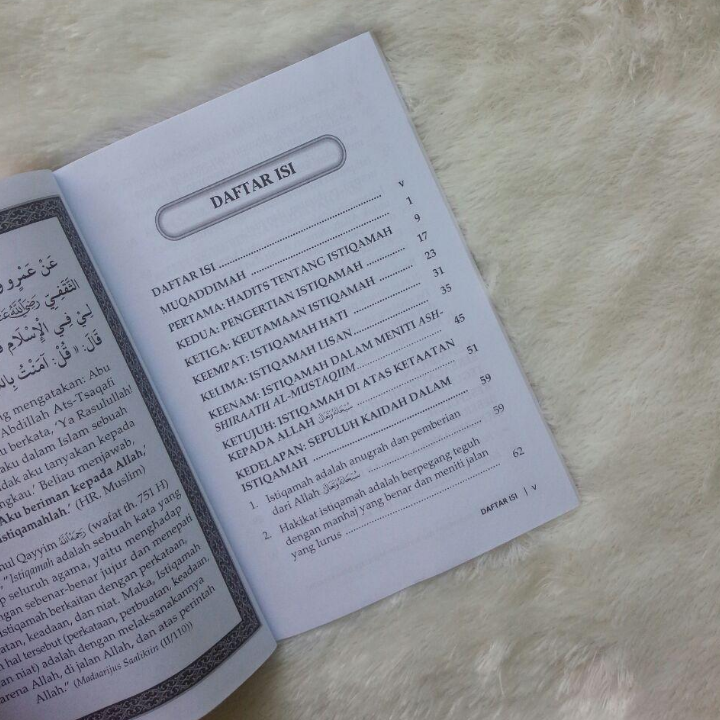 عَنْ عَمْرِو
الثَّقَفِيِّ رَضِيَ اللَّهُ عَنْهُ
لِيْ فِي الْإِسْلَامِ
قَالَ: «قُلْ: آمَنْتُ بِاللهِ
mengatakan: Abu
Abdillah Ats-Tsaqafi
berkata, 'Ya Rasulullah!
aku dalam Islam sebuah
tidak aku tanyakan kepada
Beliau menjawab,
Aku beriman kepada Allah,'
istiqamahlah.' (HR. Muslim)
Qayyim رحمه الله (wafat th. 751 H)
"Istiqamah adalah sebuah kata yang
seluruh agama, yaitu menghadap
dengan sebenar-benar jujur dan menepati
istiqamah berkaitan dengan perkataan,
keadaan, dan niat. Maka, Istiqamah
hal tersebut (perkataan, perbuatan, keadaan,
dan niat) adalah dengan melaksanakannya
karena Allah, di jalan Allah, dan atas perintah
Allah." (Madaarijus Saalikiin (II/110))
DAFTAR ISI
DAFTAR ISI ........ v
MUQADDIMAH ........ 1
PERTAMA: HADITS TENTANG ISTIQAMAH 9
KEDUA: PENGERTIAN ISTIQAMAH ........ 17
KETIGA: KEUTAMAAN ISTIQAMAH ........ 23
KEEMPAT: ISTIQAMAH HATI ........ 31
KELIMA: ISTIQAMAH LISAN ........ 35
KEENAM: ISTIQAMAH DALAM MENITI ASH-
SHIRAATH AL-MUSTAQIIM ........ 45
KETUJUH: ISTIQAMAH DI ATAS KETAATAN
KEPADA ALLAH ........ 51
KEDELAPAN: SEPULUH KAIDAH DALAM
ISTIQAMAH ........ 59
1. Istiqamah adalah anugrah dan pemberian
dari Allah ........ 59
2. Hakikat istiqamah adalah berpegang teguh
dengan manhaj yang benar dan meniti jalan
yang lurus ........ 62
DAFTAR ISI | v